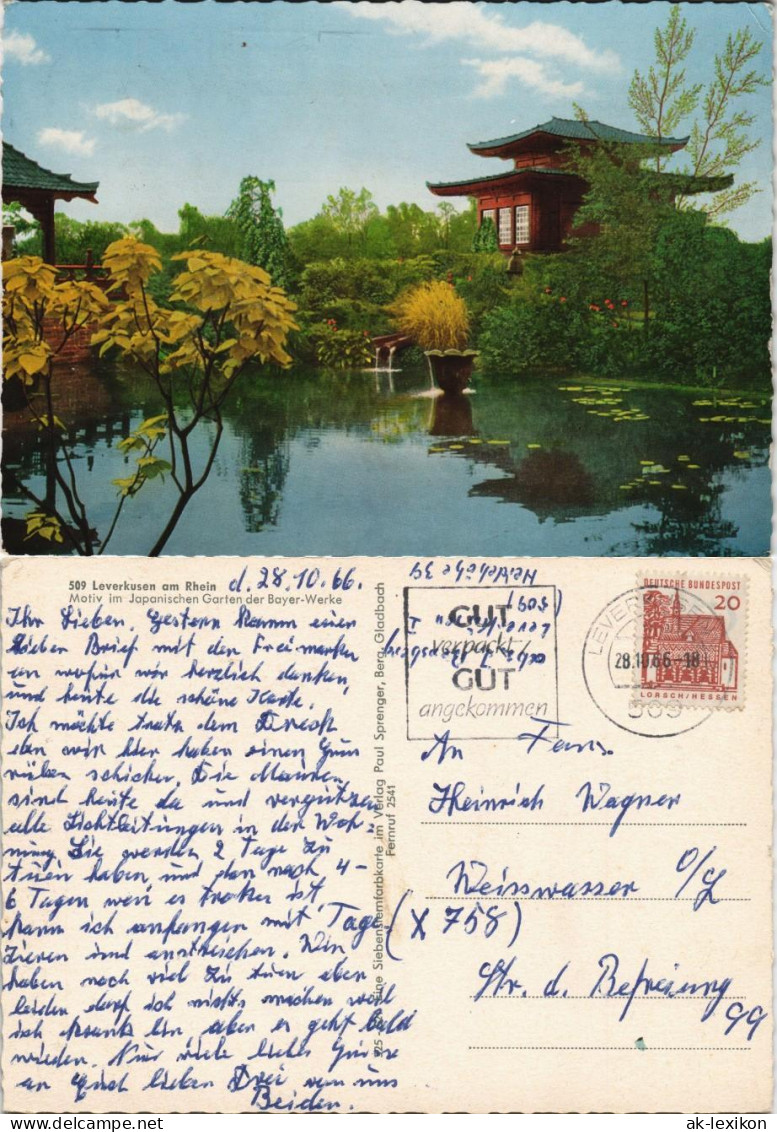 509 Leverkusen am Rhein
Motiv im Japanischen Garten der Bayer-Werke
d. 28.10.66.
Ihr Lieben. Gestern kamm einen
lieber Brief mit den Freimarken
an wofür wir herzlich danken,
und heute die schöne Karte.
Ich möchte trotz dem Dreck
den wir hier haben einen Gruß
rüber schicken. Die Maurer
sind heute da und vergipzen
alle Lichtleitungen in der Woh-
nung. Sie werden 2 Tage zu
tuen haben, und dan nach 4-
6 Tagen wen es troken ist
kann ich anfangen mit Tape
zieren und anstreichen. Wir
haben noch viel zu tuen aber
leider darf ich nichts machen weil
ich krank bin aber es geht bald
wieder. Nun viele liebe Grüsse
an Euch lieben Drei von uns
Beiden.
Eine Siebensternfarbkarte im Verlag Paul Sprenger, Berg. Gladbach
Fernruf 2541
abs.
Leverkusen 1
(509)
39
GUT
verpackt /
GUT
angekommen
28.10.66-18
DEUTSCHE BUNDESPOST
20
LORSCH/HESSEN
An Fam.
Heinrich Wagner
Weisswasser O/L
(X 758)
Str. d. Befreiung
99
ak-lexikon